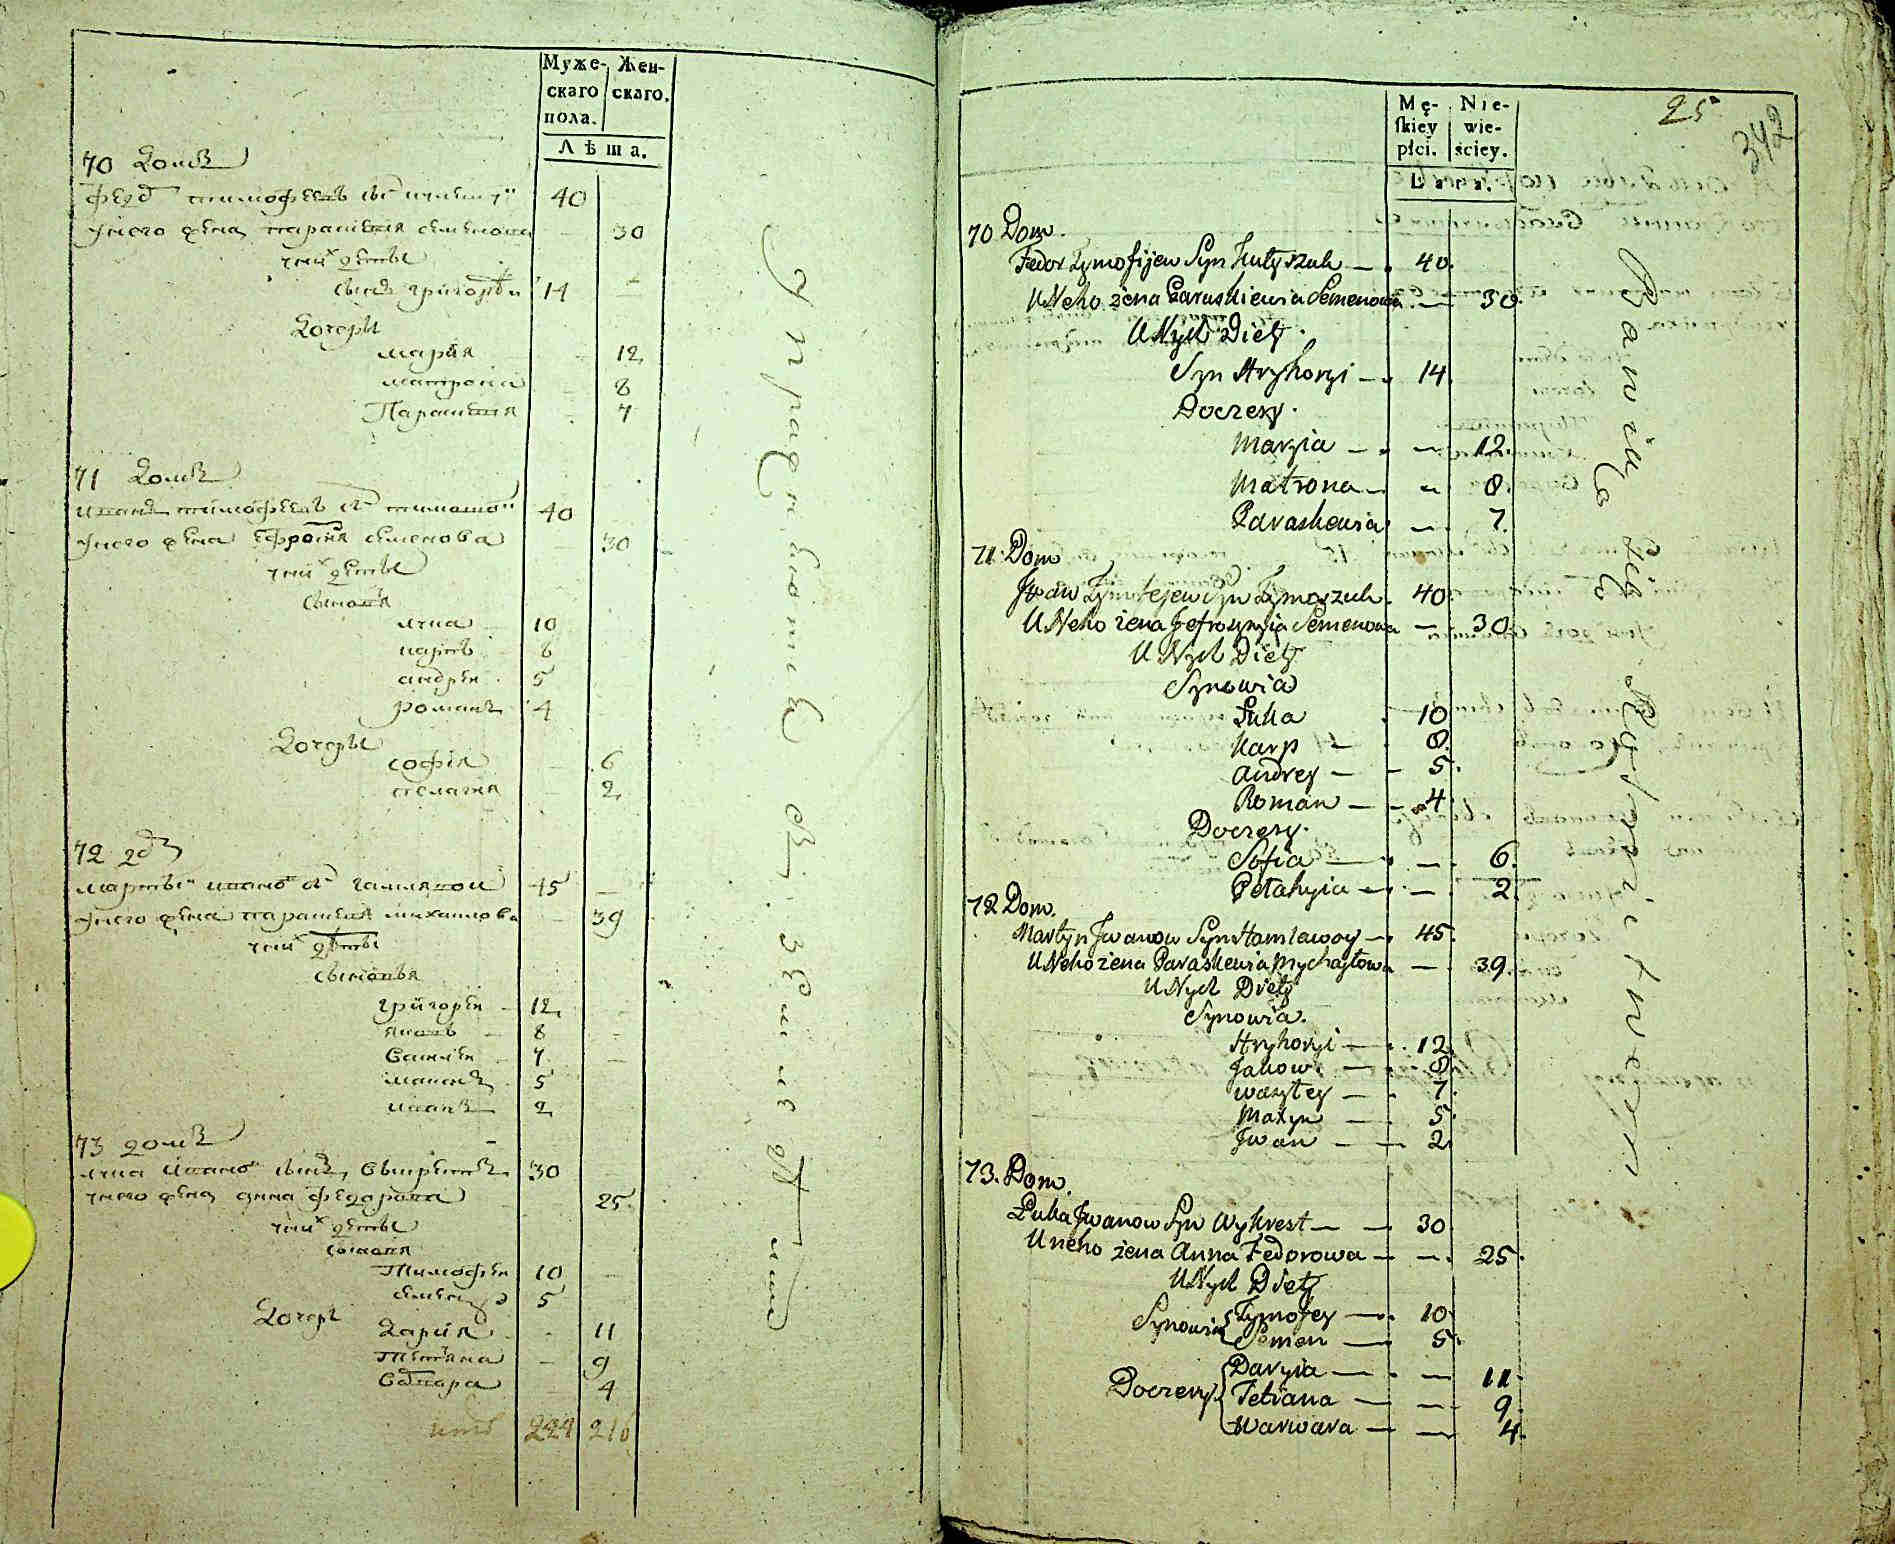 Муже-
скаго
пола.
Жен-
скаго.
Лѣта.
70 Домъ
40
у него жена параскевия семенова 30
у них дѣти
сынъ григорѣи 14
Дочери
мария 12
матрона 8
Параския 7
71 Домъ
иванъ тимофеевъ 40
у него жена Ефросия семенова 30
у них дѣти
сыновя
лука 10
карпъ 8
андреи 5
романъ 4
Дочеры
софия 6
пелагия 2
72 дъ
45
у него жена параския михаилова 39
у них дѣти
сыновья
григореи 12
яковъ 8
Василеи 7
5
иванъ 2
73 домъ
лука Иванов сынъ 30
у него жена анна федорова 25
у них дѣти
сыновя
Тимофеи 10
семенъ 5
Дочери
Дария 11
Тетяна 9
Варвара 4
224 216
Mę-
skiey
płci.
Nie-
wie-
ściey.
Lata.
25
342
70 Dom.
Fedor Tymofijew Syn 40.
U Neho żena Paraskiewia Semenowa 30.
U Nych Diety.
Syn Hryhoryi 14
Doczery.
Maryia 12.
Matrona 8.
Paraskewia 7.
71. Dom
Iwan Tymofejew Syn Tymoszuk. 40.
U Neho żena Jefrosynyia Semenowa 30.
U Nych Diety
Synowia
Łuka 10
Karp 8.
Andrey 5.
Roman 4
Doczery.
Sofia 6.
Pełahyia 2.
72 Dom.
Martyn Iwanow Syn Hamlawoy 45.
U Neho żena Paraskewia Mychayłowa 39.
U Nych Diety
Synowia.
Hryhoryi 12
Jakow. 8.
Wasyley 7.
Maxym 5.
Iwan 2
73. Dom.
Łuka Iwanow Syn Wykrest 30
U neho żena Anna Fedorowa 25.
U Nych Diety
Synowia Tymofey 10
Semen 5.
Doczery. Daryia 11.
Tetiana 9.
Warwara 4.